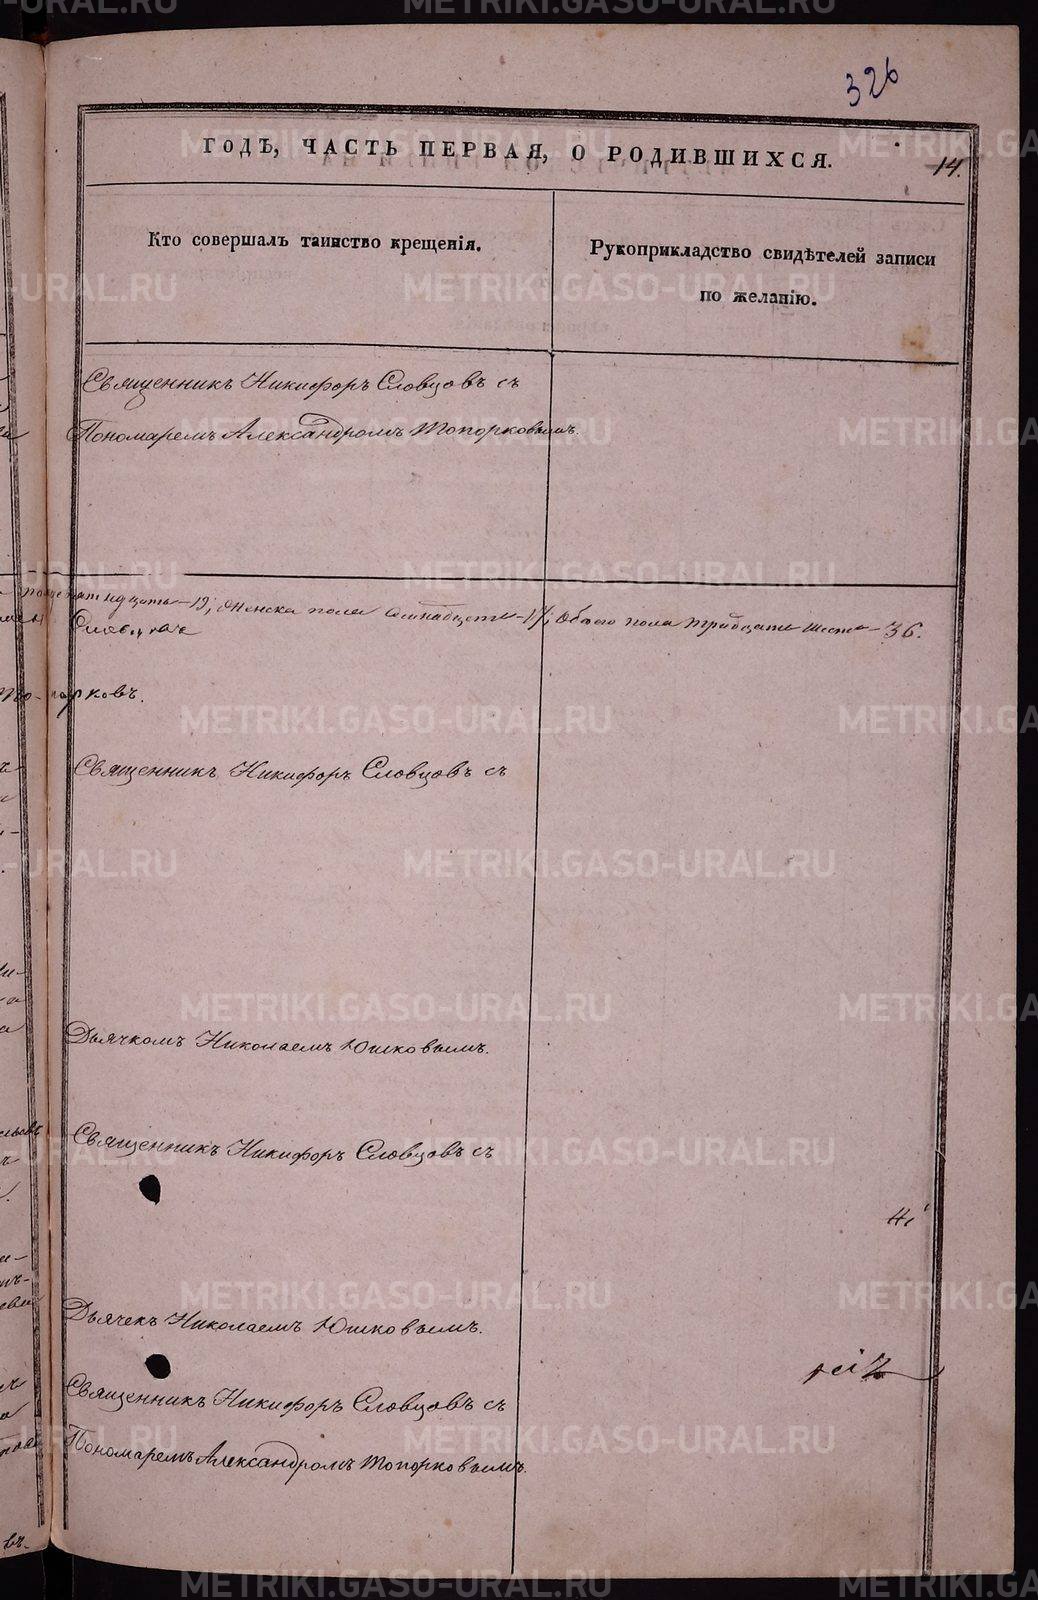 326
ГОДЪ, ЧАСТЬ ПЕРВАЯ, О РОДИВШИХСЯ.
14.
Кто совершалъ таинство крещенія.
Рукоприкладство свидѣтелей записи
по желанію.
Священникъ Никифоръ Словцовъ съ
Пономаремъ Александромъ Топорковымъ.
19, Женска пола Семнадцать - 17, Обоего пола тридцать шесть - 36.
Словцовъ
Топорковъ.
Священникъ Никифоръ Словцовъ съ
Дьячкомъ Николаемъ Юшковымъ.
Священникъ Никифоръ Словцовъ съ
Дьячекъ Николаемъ Юшковымъ.
Священникъ Никифоръ Словцовъ съ
Пономаремъ Александромъ Топорковымъ.
METRIKI.GASO-URAL.RU